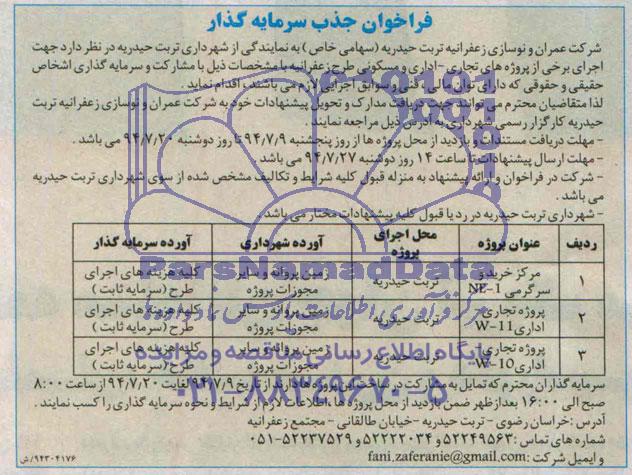 فراخوان جذب سرمایه گذار
شرکت عمران و نوسازی زعفرانیه تربت حیدریه (سهامی خاص) به نمایندگی از شهرداری تربت حیدریه در نظر دارد جهت
اجرای برخی از پروژه های تجاری -اداری و مسکونی طرح زعفرانیه با مشخصات ذیل با مشارکت و سرمایه گذاری اشخاص
حقیقی و حقوقی که دارای توان مالی، فنی و سوابق اجرایی لازم می باشند، اقدام نماید.
لذا متقاضیان محترم می توانند جهت دریافت مدارک و تحویل پیشنهادات خود به شرکت عمران و نوسازی زعفرانیه تربت
حیدریه کارگزار رسمی شهرداری به آدرس ذیل مراجعه نمایند.
- مهلت دریافت مستندات و بازدید از محل پروژه ها از روز پنجشنبه ۹۴/۷/۹ تا روز دوشنبه ۹۴/۷/۲۰ می باشد.
- مهلت ارسال پیشنهادات تا ساعت ۱۴ روز دوشنبه ۹۴/۷/۲۷ می باشد.
- شرکت در فراخوان و ارائه پیشنهاد به منزله قبول کلیه شرایط و تکالیف مشخص شده از سوی شهرداری تربت حیدریه
می باشد.
- شهرداری تربت حیدریه در رد یا قبول کلیه پیشنهادات مختار می باشد.
ردیف عنوان پروژه محل اجرای پروژه آورده شهرداری آورده سرمایه گذار
۱ مرکز خرید و سرگرمی NE-1 تربت حیدریه زمین پروانه و سایر مجوزات پروژه کلیه هزینه های اجرای طرح (سرمایه ثابت)
۲ پروژه تجاری اداری W-11 تربت حیدریه زمین پروانه و سایر مجوزات پروژه کلیه هزینه های اجرای طرح (سرمایه ثابت)
۳ پروژه تجاری اداری W-10 تربت حیدریه زمین پروانه و سایر مجوزات پروژه کلیه هزینه های اجرای طرح (سرمایه ثابت)
سرمایه گذاران محترم که تمایل به مشارکت در ساخت این پروژه ها دارند از تاریخ ۹۴/۷/۹ لغایت ۹۴/۷/۲۰ از ساعت ۸:۰۰
صبح الی ۱۶:۰۰ بعدازظهر ضمن بازدید از محل پروژه ها، اطلاعات لازم از شرایط و نحوه سرمایه گذاری را کسب نمایند.
آدرس: خراسان رضوی - تربت حیدریه -خیابان طالقانی - مجتمع زعفرانیه
شماره های تماس: ۵۲۲۴۹۵۶۳ و ۵۲۲۲۲۰۳۴ و ۵۲۲۳۷۵۲۹-۰۵۱
و ایمیل شرکت: fani.zaferanie@gmail.com
۹۴۳۰۴۱۷۶/ش
ParsNamadData
پایگاه اطلاع رسانی مناقصه و مزایده
۰۲۱-۸۸۳۴۹۶۷۰-۵